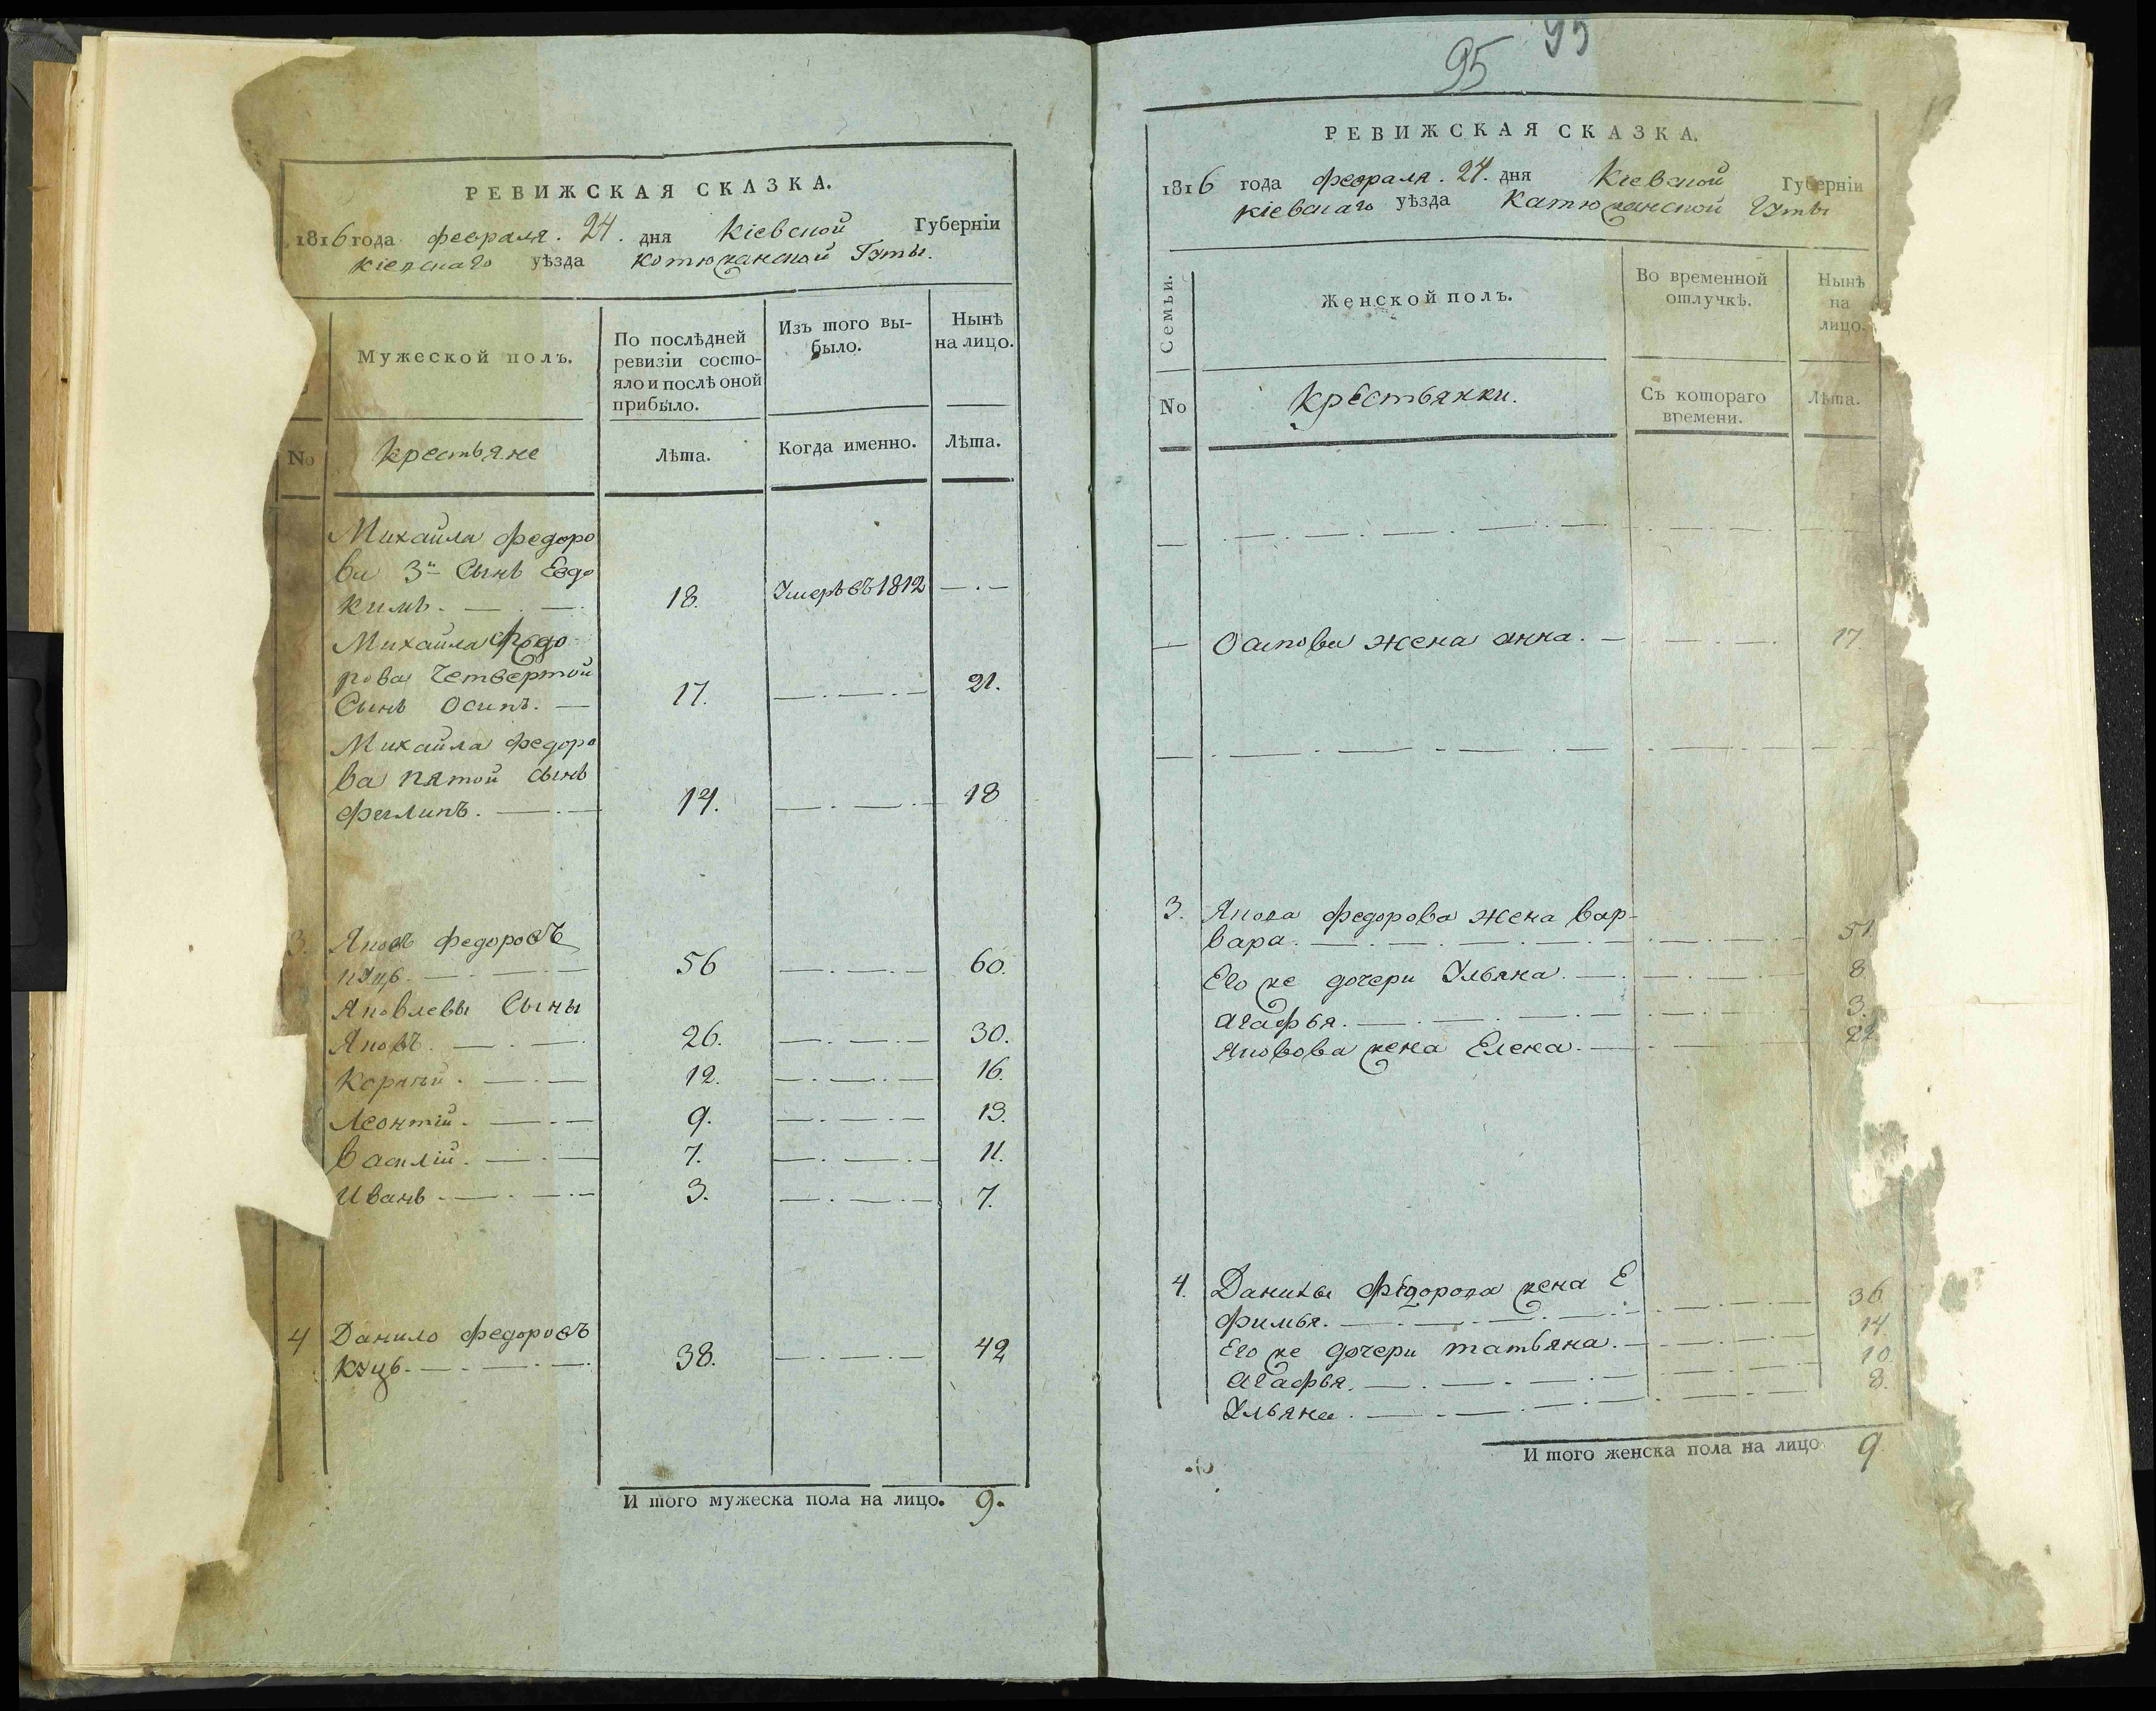 РЕВИЖСКАЯ СКАЗКА.
1816 года февраля. 24. дня Кіевской Губерніи
кіевскаго уѣзда Котюжанской Гуты.
Мужеской полъ.
По послѣдней
ревизіи состо-
яло и послѣ оной
прибыло.
Изъ того вы-
было.
Нынѣ
на лицо.
No
крестьяне
Лѣта.
Когда именно.
Лѣта.
Михайла федоро
ва 3й Сынъ Евдо
кимъ. 18. Умеръ въ 1812
Михайла Федо
рова Четвертой
Сынъ Осипъ. 17. 21.
Михайла федоро
ва пятой сынъ
филипъ. 14. 18
3. Яковъ федоровъ
куцъ. 56 60.
Яковлевы Сыны
Яковъ. 26. 30.
Корнѣй. 12. 16.
Леонтій. 9. 13.
василій. 7. 11.
Иванъ 3. 7.
4 Данило федоровъ
куцъ. 38. 42
И того мужеска пола на лицо. 9.
95 95
РЕВИЖСКАЯ СКАЗКА.
1816 года февраля. 24. дня Кіевской Губерніи
кіевскаго уѣзда Катюжанской Гуты
Семьи.
Женской полъ.
Во временной
отлучкѣ.
Нынѣ
на
лицо.
No
крестьянки.
Съ котораго
времени.
Лѣта.
Осипова жена анна. 17.
3. Якова федорова жена вар-
вара. 51.
Его же дочери Ульяна. 8
агафья. 3.
Яковова жена Елена. 22
4. Данилы Федорова жена Е
фимья. 36
Его же дочери татьяна. 14
агафья. 10.
Ульяна. 8.
И того женска пола на лицо. 9.